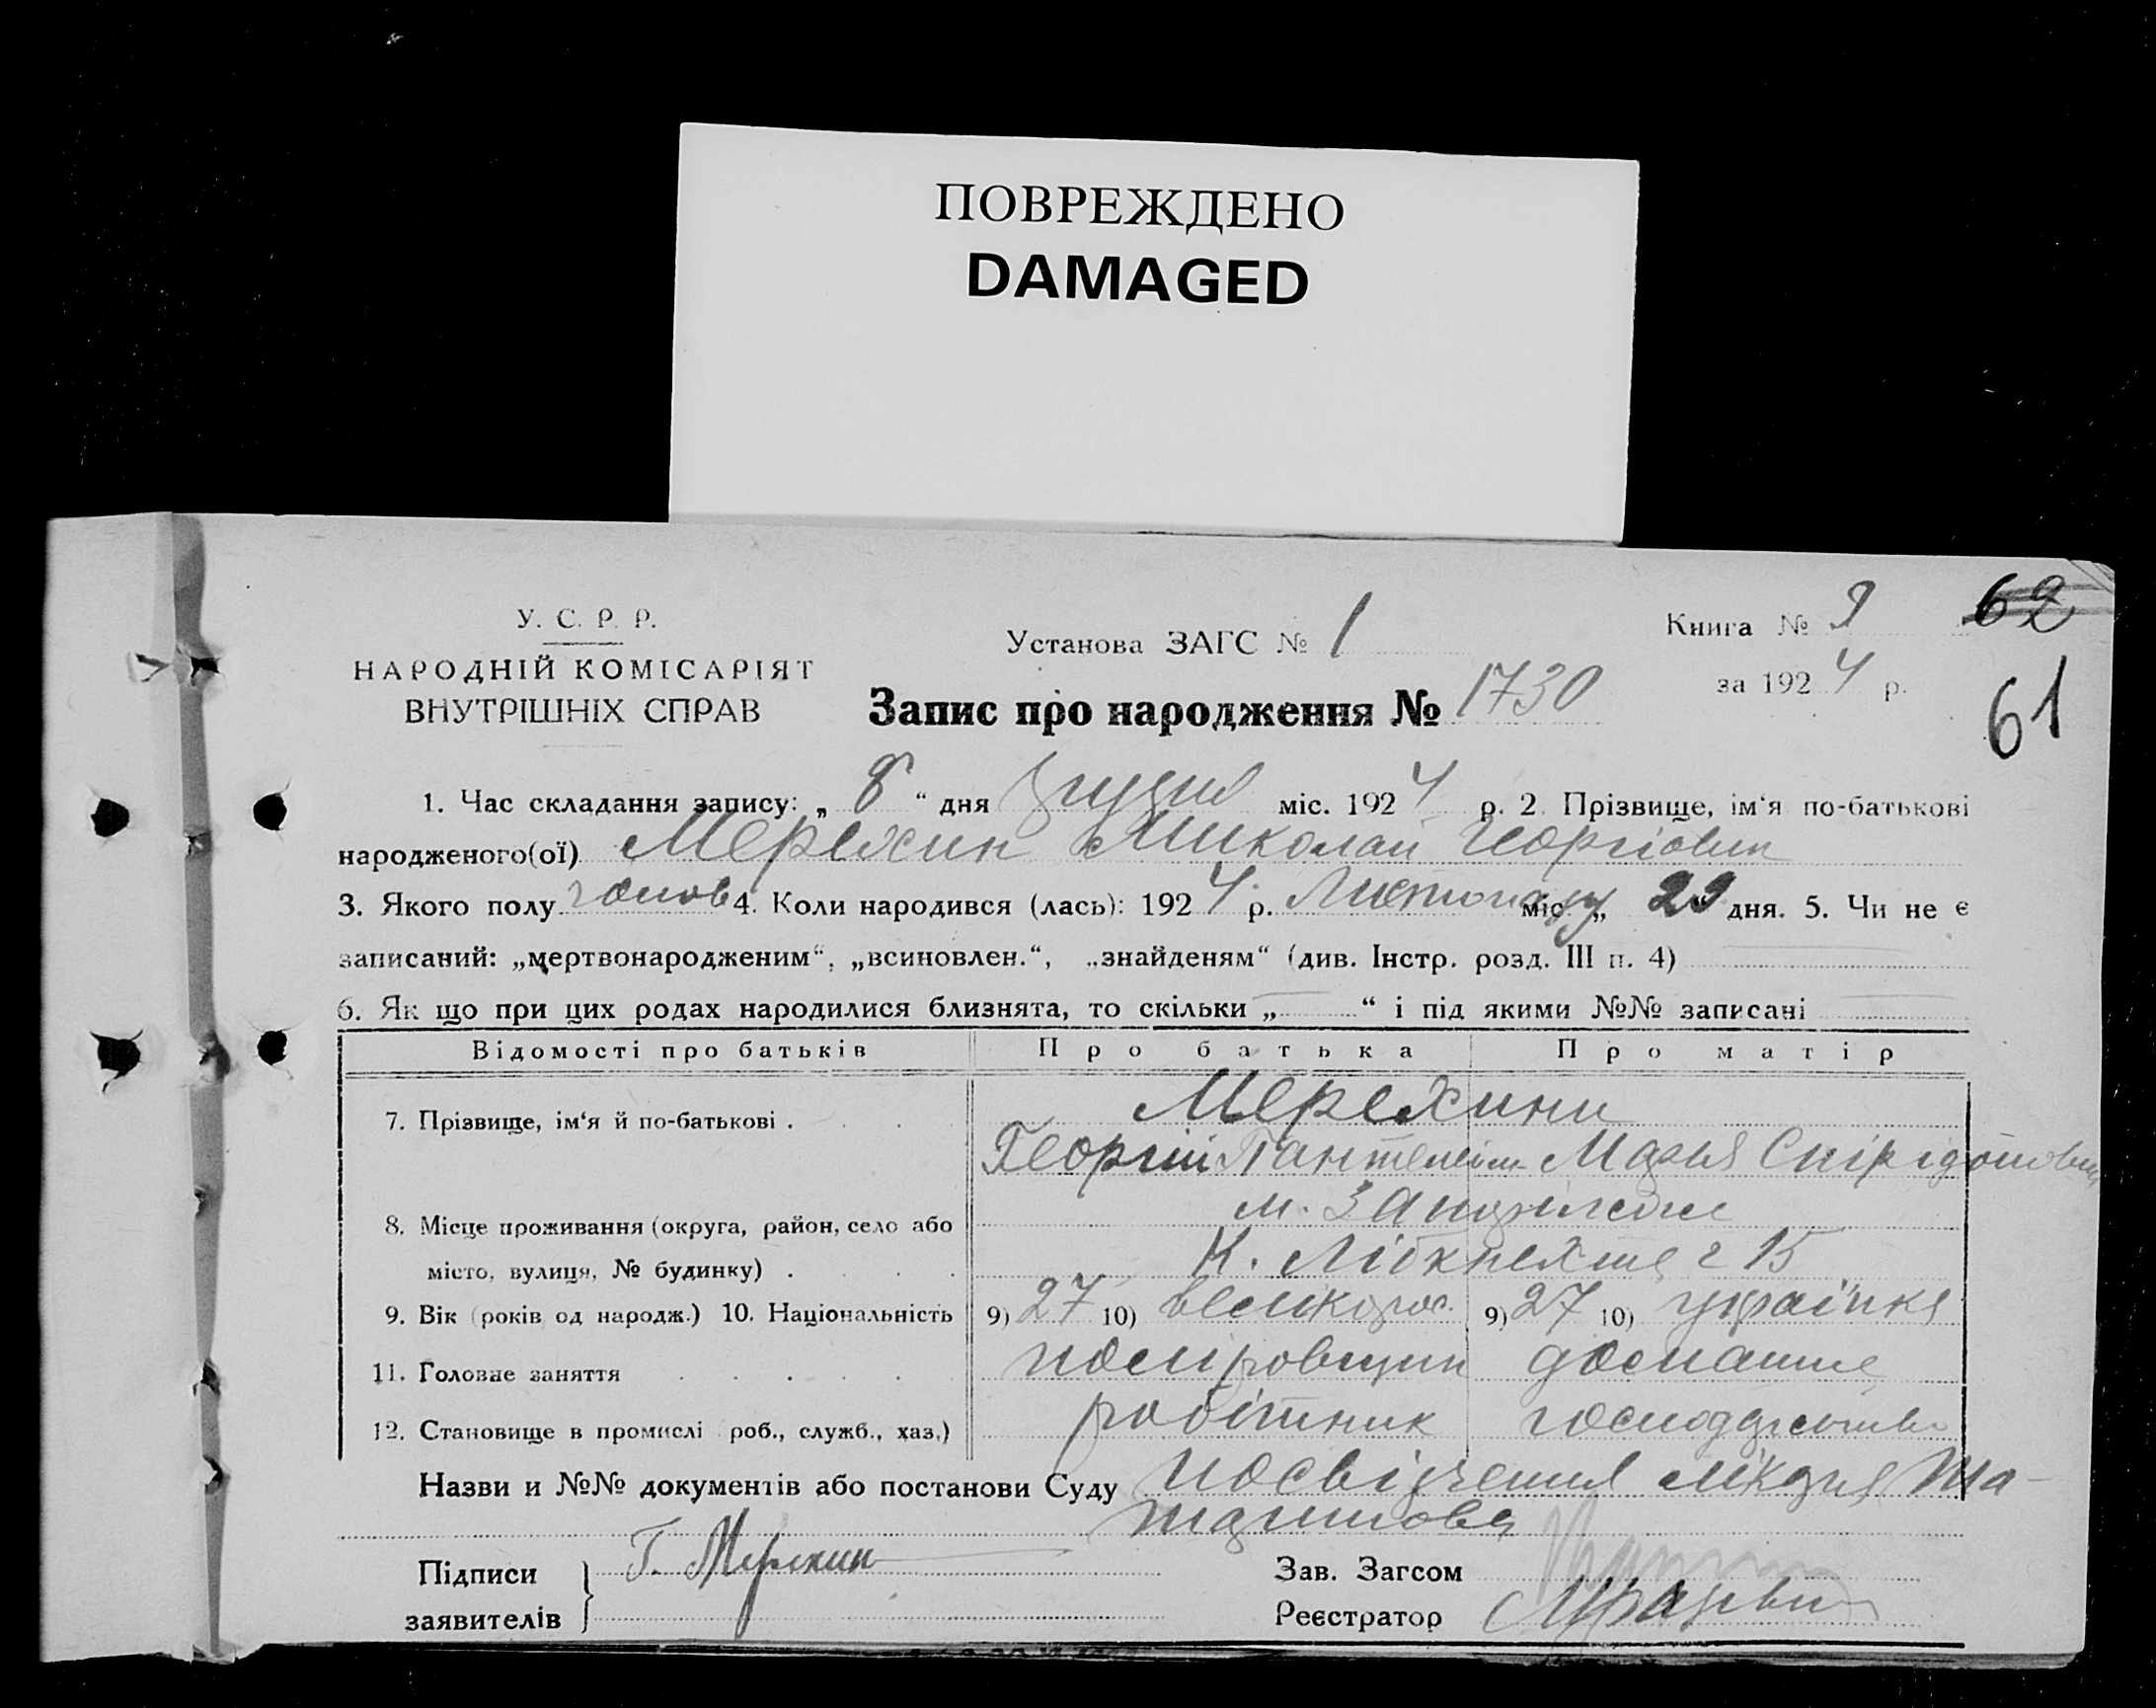 ПОВРЕЖДЕНО
DAMAGED
У. С. Р. Р.
НАРОДНІЙ КОМІСАРІЯТ
ВНУТРІШНІХ СПРАВ
Установа ЗАГС № 1
Книга № 9
62
за 1924 р.
61
Запис про народження № 1730
1. Час складання запису: „ 8 “ дня грудня міс. 1924 р. 2 Прізвище, ім‘я по-батькові
народженого(ої) Мерехин Николай Георгіович
3. Якого полу чолов 4. Коли народився (лась): 1924 р. Листопаду міс. „ 29 дня. 5. Чи не є
записаний: „мертвонародженим“, „всиновлен.“, „знайденям“ (див. Інстр. розд. III п. 4)
6. Як що при цих родах народилися близнята, то скільки „ “ і під якими №№ записані
Відомості про батьків Про батька Про матір
7. Прізвище, ім‘я й по-батькові . Мерехини
Георгій Пантелеім. Марья Спірідоновна
8. Місце проживання (округа, район, село або м. Запоріжжє
місто, вулиця, № будинку) . К. Лібкнехта 15
9. Вік (років од народж.) 10. Національність 9) 27 10) великорос. 9) 27 10) українка
11. Головне заняття домашнє
12. Становище в промислі роб., служб., хаз.) робітник господарство
Назви и №№ документів або постанови Суду посвідчення лікаря
Підписи
заявителів Г. Мерехин
Зав. Загсом
Реєстратор